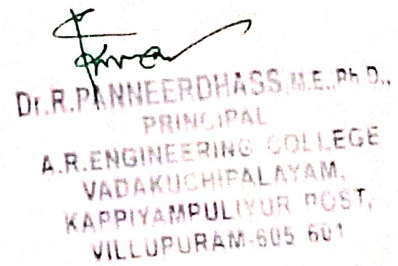 Dr.R.PANNEERDHASS,M.E.,Ph.D.,
PRINCIPAL
A.R.ENGINEERING COLLEGE
VADAKUCHIPALAYAM,
KAPPIYAMPULIYUR POST,
VILLUPURAM-605 601